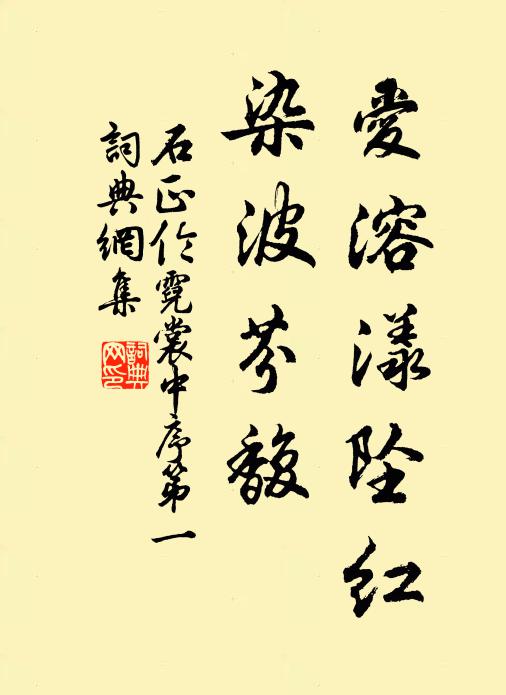 愛溶漾墜紅
染波芬馥
石正伦霓裳中序第一
詞典網集
詞典网印